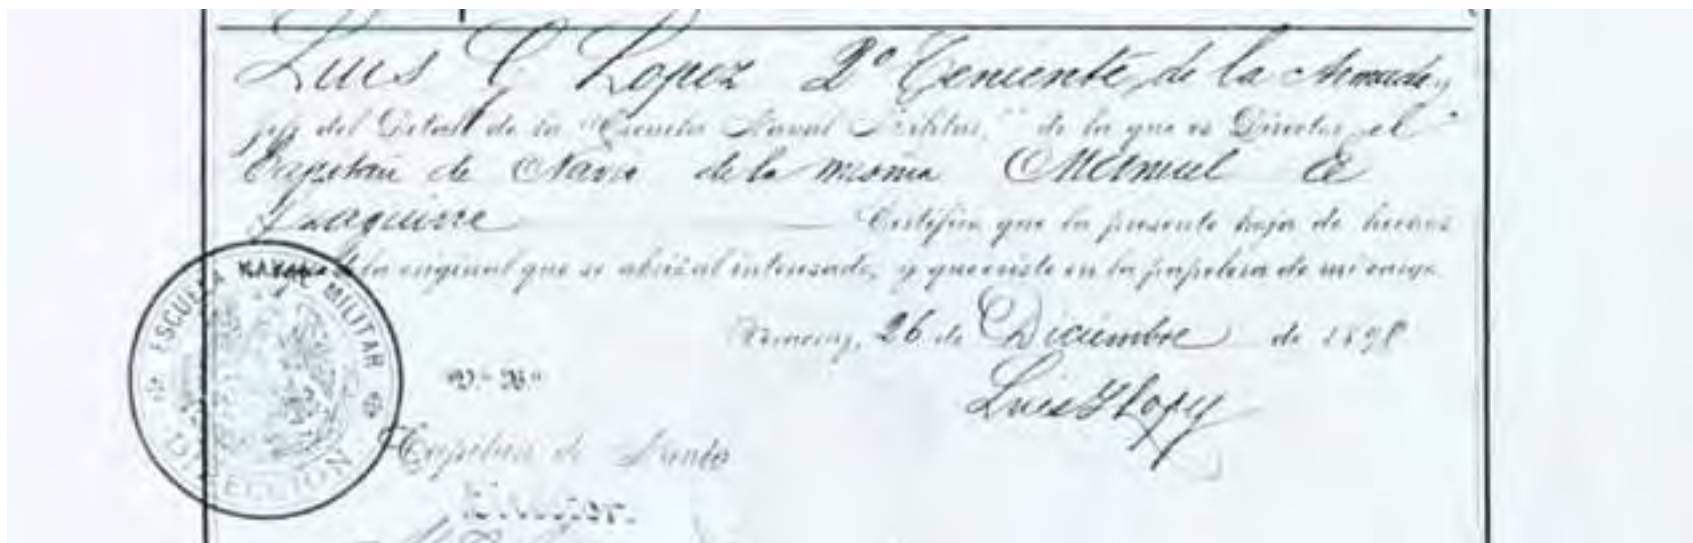 Luis G Lopez 2º Teniente de la Armada,
jefe del Detall de la "Escuela Naval Militar," de la que es Director el
Capitán de Navio de la misma Manuel E
Izaguirre Certifica que la presente hoja de hechos
de la original que se abrió al interesado, y que existe en la papelera de mi cargo.
Veracruz, 26 de Diciembre de 1898
Luis G Lopez
ESCUELA NAVAL MILITAR
DIRECCION
Vº Bº
Capitan de Navio
Director.